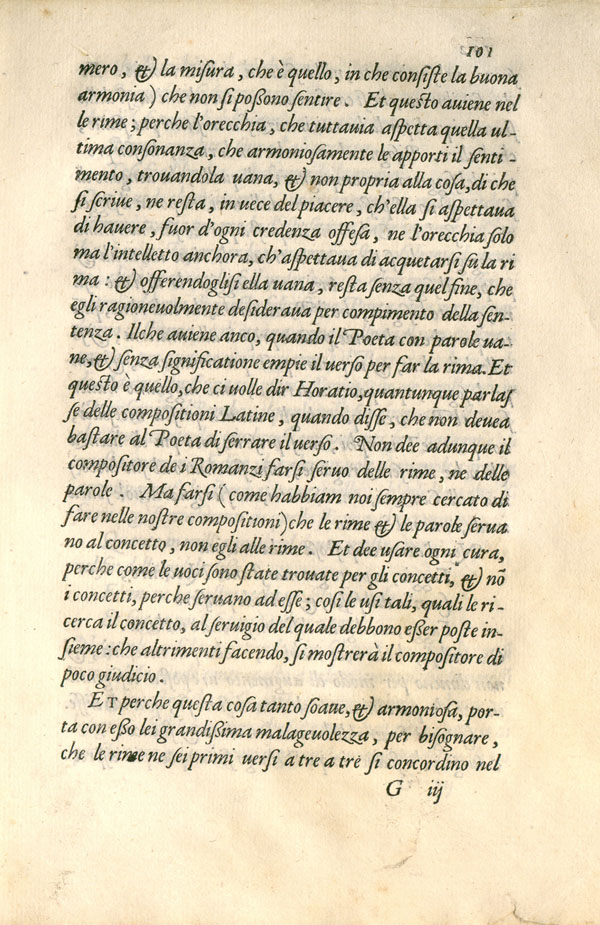 101
mero, &) la misura, che è quello, in che consiste la buona
armonia) che non si possono sentire. Et questo auiene nel
le rime; perche l'orecchia, che tuttauia aspetta quella ul-
tima consonanza, che armoniosamente le apporti il senti-
mento, trouandola uana, &) non propria alla cosa, di che
si scriue, ne resta, in uece del piacere, ch'ella si aspettaua
di hauere, fuor d'ogni credenza offesa, ne l'orecchia solo
ma l'intelletto anchora, ch'aspettaua di acquetarsi sù la ri
ma: &) offerendoglisi ella uana, resta senza quel fine, che
egli ragioneuolmente desideraua per compimento della sen-
tenza. Ilche auiene anco, quando il Poeta con parole ua-
ne, &) senza significatione empie il uerso per far la rima. Et
questo è quello, che ci volle dir Horatio, quantunque parlas
se delle compositioni Latine, quando disse, che non deuea
bastare al Poeta di serrare il uerso. Non dee adunque il
compositore de i Romanzi farsi seruo delle rime, ne delle
parole. Ma farsi (come habbiam noi sempre cercato di
fare nelle nostre compositioni) che le rime &) le parole serua
no al concetto, non egli alle rime. Et dee usare ogni cura,
perche come le uoci sono state trouate per gli concetti, &) nõ
i concetti, perche seruano ad esse; cosi le usi tali, quali le ri-
cerca il concetto, al seruigio del quale debbono esser poste in-
sieme: che altrimenti facendo, si mostrerà il compositore di
poco giudicio.
ET perche questa cosa tanto soaue, &) armoniosa, por-
ta con esso lei grandissima malageuolezza, per bisognare,
che le rime ne sei primi uersi a tre a tre si concordino nel
G iij